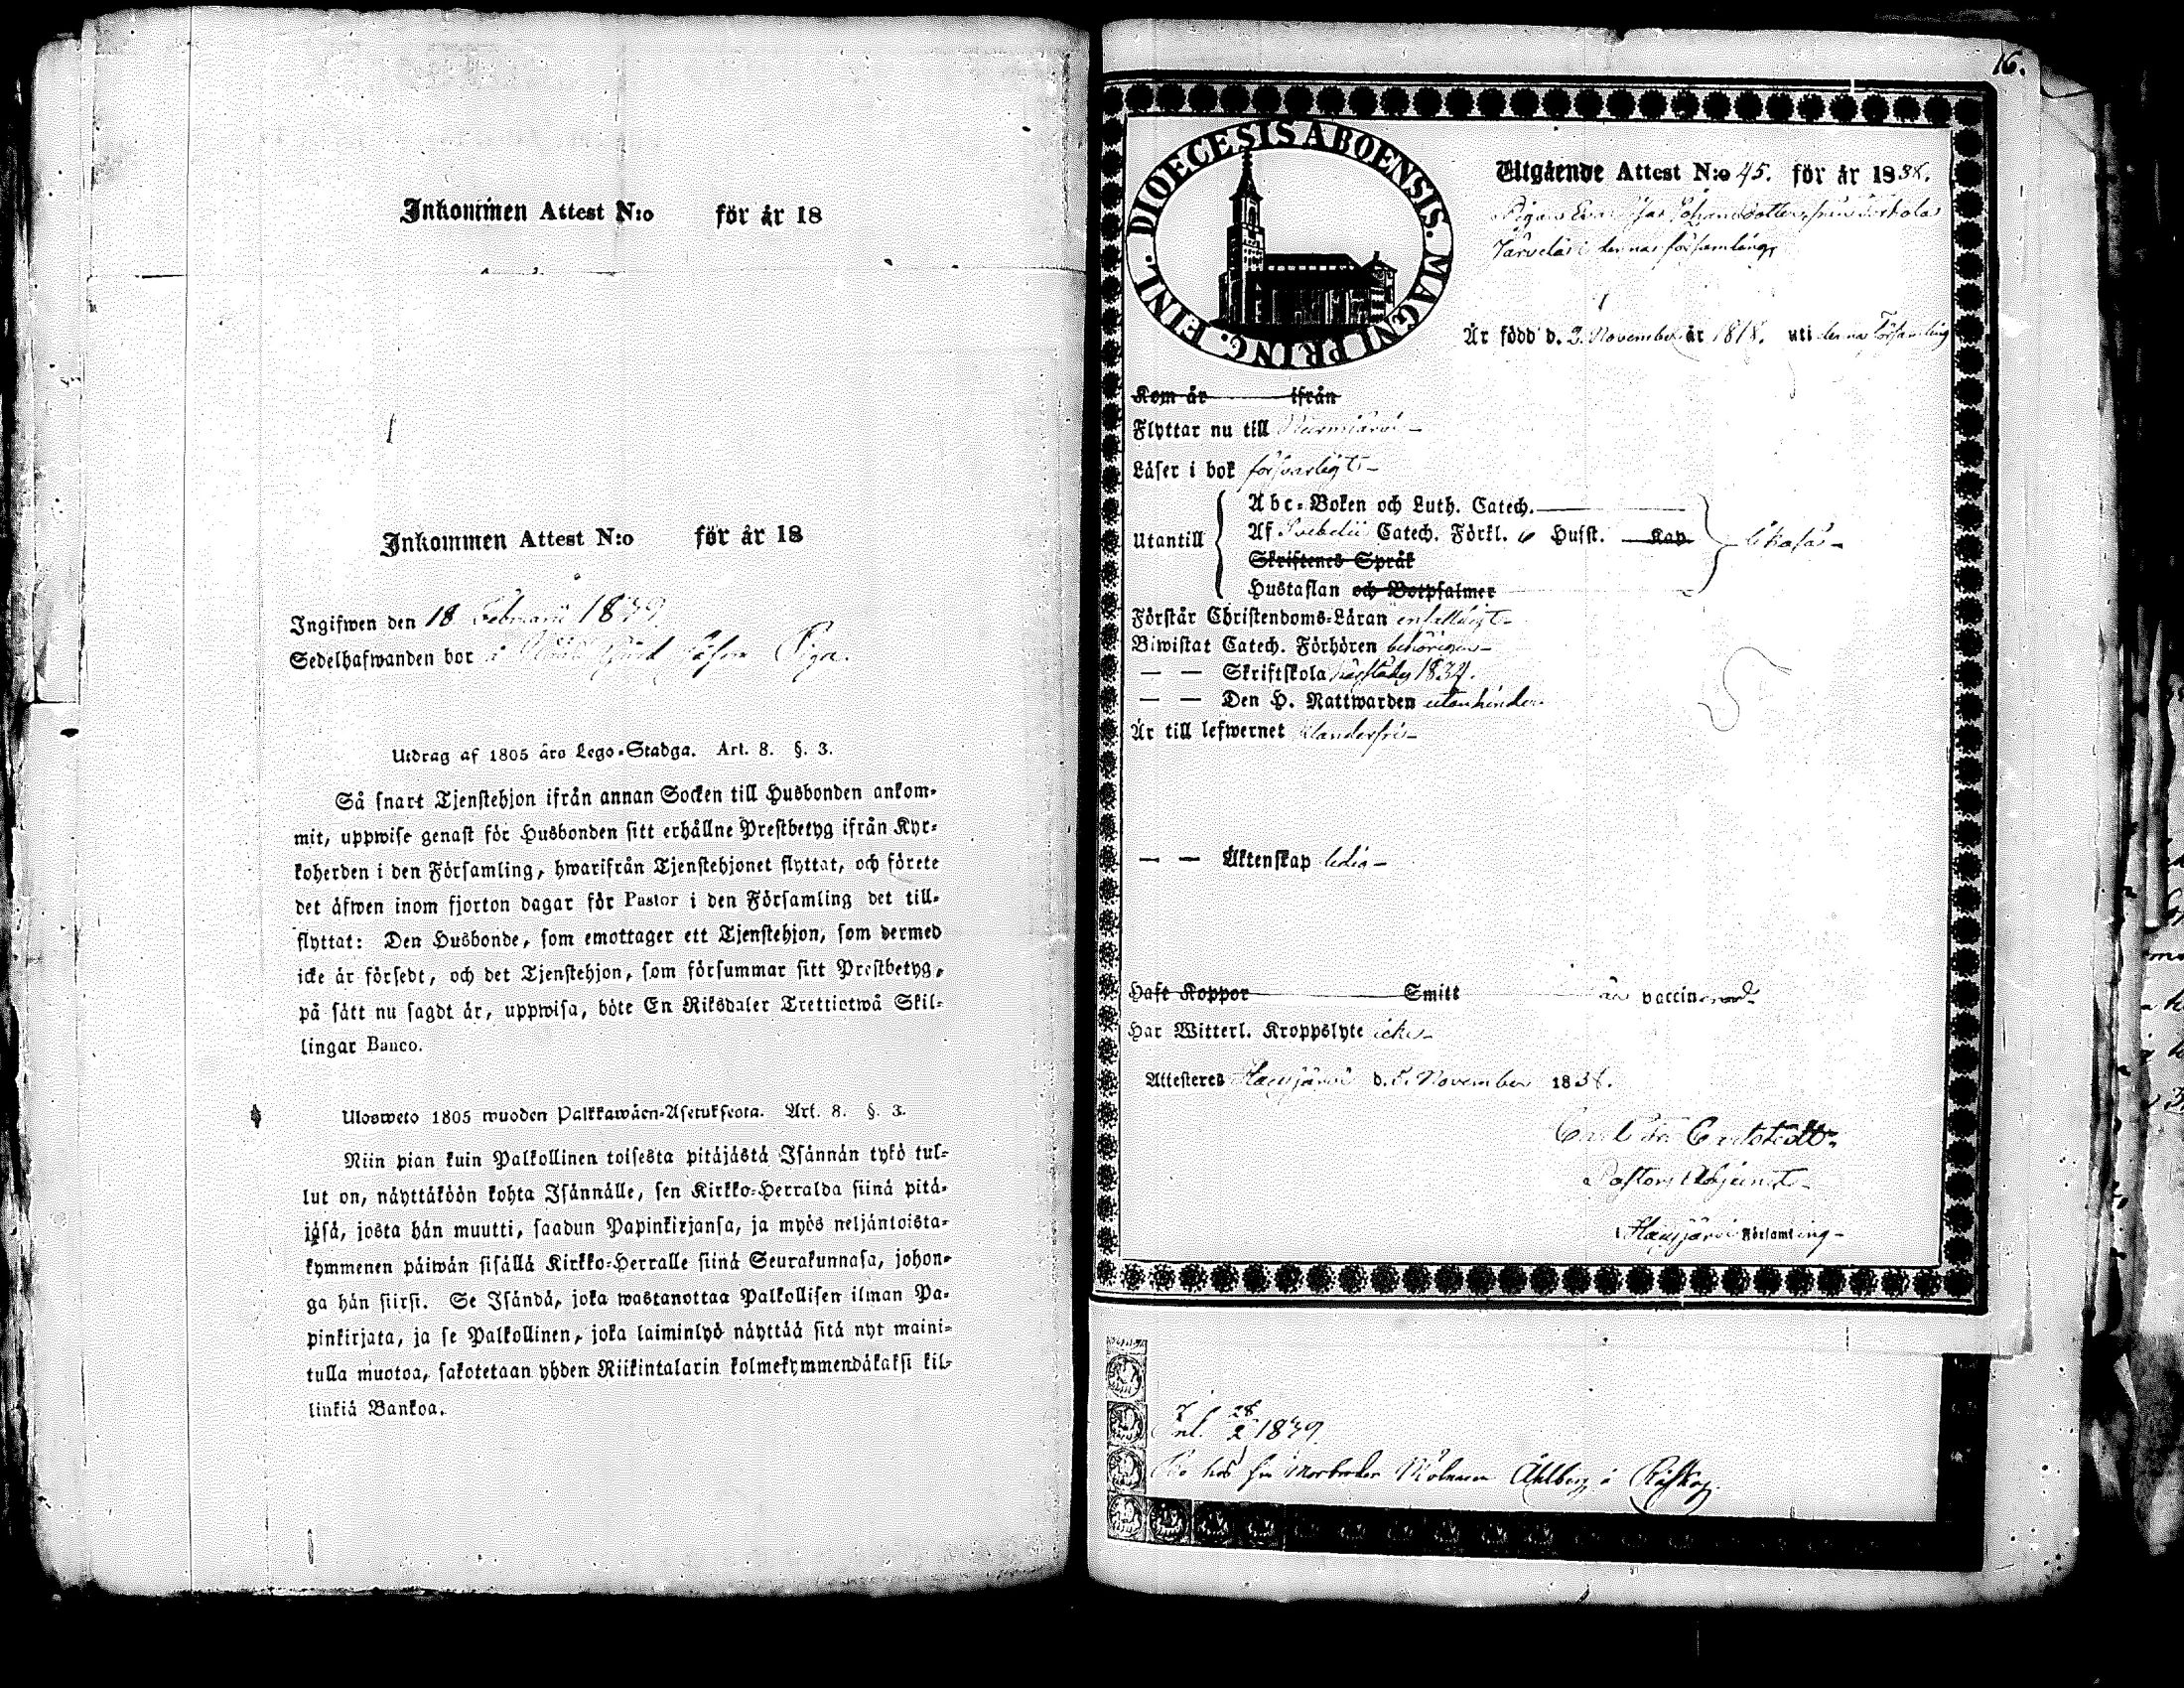 Inkommen Attest N:o för år 18
Inkommen Attest N:o för år 18
Ingifwen den 18 Februarii 1839
Sedelhafwanden bor å Piga.
Utdrag af 1805 års Lego-Stadga. Art. 8. §. 3.
Så snart Tjenstehjon ifrån annan Socken till Husbonden ankom-
mit, uppwise genast för Husbonden sitt erhållne Prestbetyg ifrån Kyr-
koherden i den Församling, hwarifrån Tjenstehjonet flyttat, och förete
det äfwen inom fjorton dagar för Pastor i den Församling det till-
flyttat: Den Husbonde, som emottager ett Tjenstehjon, som dermed
icke är försedt, och det Tjenstehjon, som försummar sitt Prestbetyg,
på sätt nu sagdt är, uppwisa, böte En Riksdaler Trettiotwå Skil-
lingar Banco.
Ulosweto 1805 wuoden Palkkawäen-Asetuksesta. Art. 8. §. 3.
Niin pian kuin Palkollinen toisesta pitäjästä Isännän tykö tul-
lut on, näyttäköön kohta Isännälle, sen Kirkko-Herralda siinä pitä-
jäsä, josta hän muutti, saadun Papinkirjansa, ja myös neljäntoista-
kymmenen päiwän sisällä Kirkko-Herralle siinä Seurakunnasa, johon-
ga hän siirsi. Se Isändä, joka wastanottaa Palkollisen ilman Pa-
pinkirjata, ja se Palkollinen, joka laiminlyö näyttää sitä nyt maini-
tulla muotoa, sakotetaan yhden Riikintalarin kolmekymmendäkaksi kil-
linkiä Bankoa.
16.
DIOECESIS ABOENSIS. MAGNI PRINC. FINL.
Utgående Attest N:o 45. för år 1838.
Pigan Eva Johansdotter från
i denna församling,
Är född d. 2. November år 1818. uti denna Församling
Kom år ifrån
Flyttar nu till Nurmijärvi
Läser i bok försvarligt
Abc-Boken och Luth. Catech.
Utantill Af Svebelii Catech. Förkl. o Husst. Kap
Skriftenes Språk
Hustaflan och Botpsalmer
Förstår Christendoms-Läran enfaldigt
Biwistat Catech. Förhören behörigen
— — Skriftskola härstädes 1834.
— — Den H. Nattwarden utan hinder
Är till lefwernet klanderfri
— — Äktenskap ledig
Haft Koppor Smitt är vaccinerad
Har Witterl. Kroppslyte icke
Attesteras Hausjärvi d. 5. November 1838.
Pastors Adjunct
Hausjärvi Församling
Inl. 28/2 1839
Bor hos sin Morbroder Mölnaren Åhlberg å Röyskop.